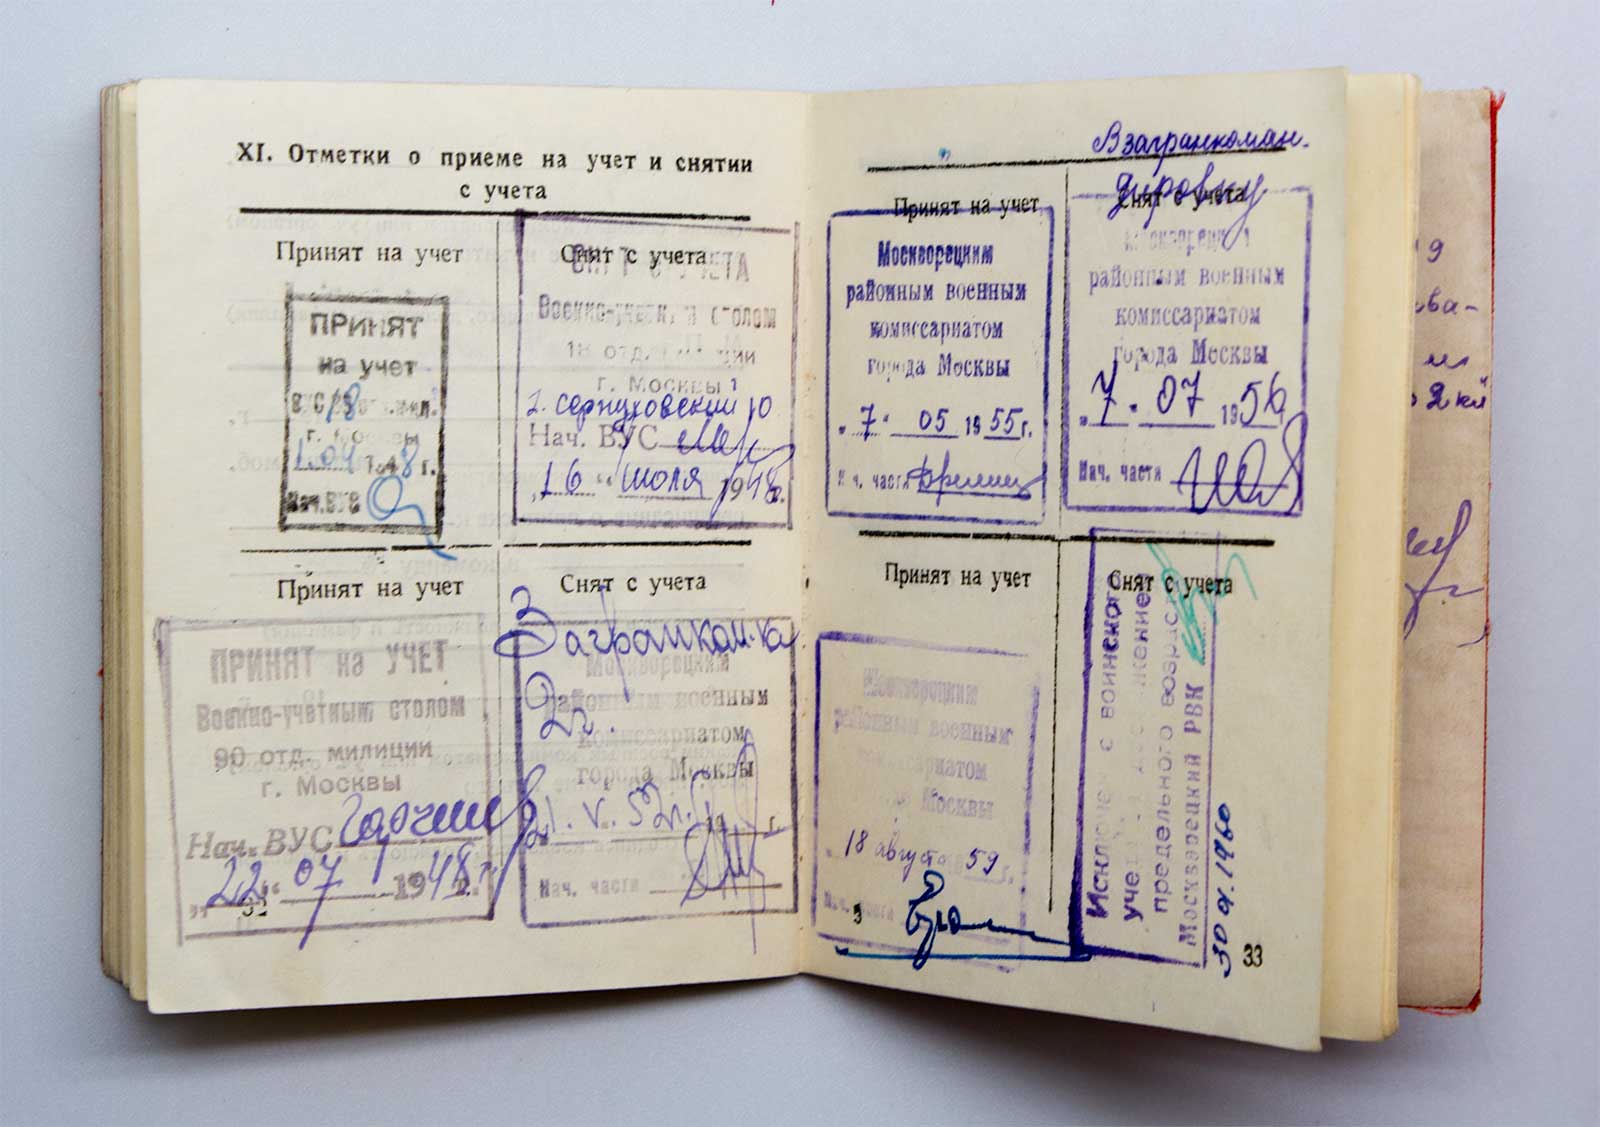 XI. Отметки о приеме на учет и снятии
с учета
Принят на учет
ПРИНЯТ
на учет
ВУС 18
1.04 1948 г.
Нач. ВУС
Снят с учета
СНЯТ С УЧЕТА
Военно-учетным столом
18 отд. милиции
г. Москвы
г. Серпуховский
Нач. ВУС
„16“ июля 1948 г.
Принят на учет
ПРИНЯТ на УЧЕТ
Военно-учетным столом
90 отд. милиции
г. Москвы
Нач. ВУС
„22“ 07 1948 г.
Снят с учета
Загранком-ка
2 г.
Москворецким
районным военным
комиссариатом
города Москвы
21.V.52 г.
Нач. части
32
В загранкоман-
дировку
Принят на учет
Москворецким
районным военным
комиссариатом
города Москвы
„7“ 05 1955 г.
Нач. части
Снят с учета
Москворецким
районным военным
комиссариатом
города Москвы
„7“ 07 1956
Нач. части
Принят на учет
Москворецким
районным военным
комиссариатом
города Москвы
18 августа 59 г.
Нач. части
Снят с учета
Исключен с воинского
учета
предельного возраста
Москворецкий РВК
30 9. 1960
33